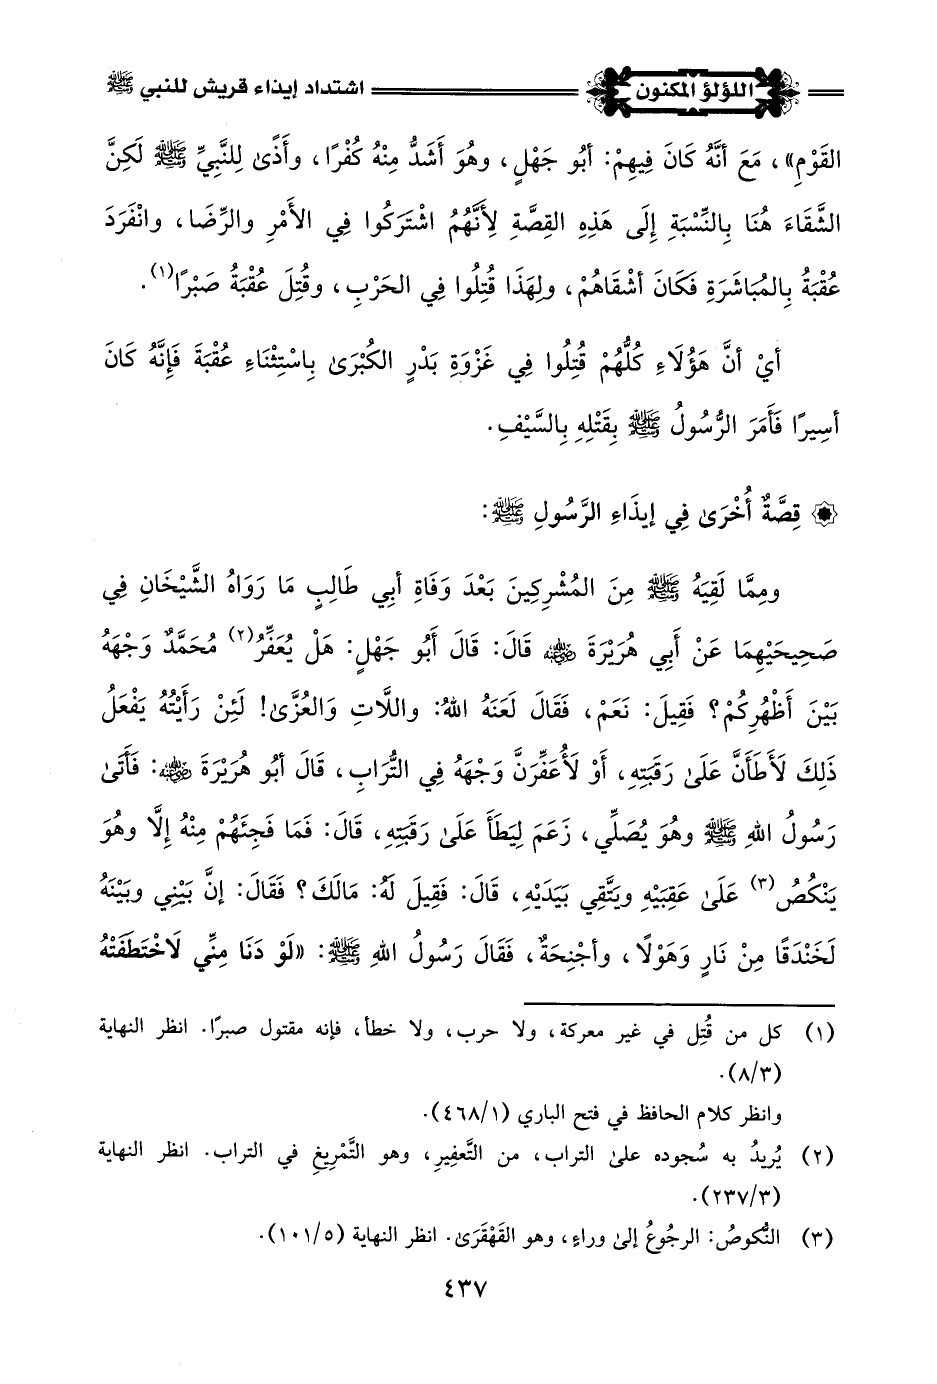 اللؤلؤ المكنون اشتداد إيذاء قريش للنبي ﷺ
القَوْمِ»، مَعَ أنَّهُ كَانَ فِيهِمْ: أبُو جَهْلٍ، وهُوَ أَشَدُّ مِنْهُ كُفْرًا، وأَذًى لِلنَّبِيِّ ﷺ لَكِنَّ
الشَّقَاءَ هُنَا بِالنِّسْبَةِ إِلَى هَذِهِ القِصَّةِ لِأَنَّهُمُ اشْتَرَكُوا فِي الأَمْرِ والرِّضَا، وانْفَرَدَ
عُقْبَةُ بِالمُبَاشَرَةِ فَكَانَ أشْقَاهُمْ، ولِهَذَا قُتِلُوا فِي الحَرْبِ، وقُتِلَ عُقْبَةُ صَبْرًا(١).
أيْ أنَّ هَؤُلَاءِ كُلُّهُمْ قُتِلُوا فِي غَزْوَةِ بَدْرٍ الكُبْرَىٰ بِاسْتِثْنَاءِ عُقْبَةَ فَإِنَّهُ كَانَ
أسِيرًا فَأَمَرَ الرَّسُولُ ﷺ بِقَتْلِهِ بِالسَّيْفِ.
۞ قِصَّةٌ أُخْرَىٰ فِي إيذَاءِ الرَّسُولِ ﷺ:
ومِمَّا لَقِيَهُ ﷺ مِنَ المُشْرِكِينَ بَعْدَ وَفَاةِ أبِي طَالِبٍ مَا رَوَاهُ الشَّيْخَانِ فِي
صَحِيحَيْهِمَا عَنْ أَبِي هُرَيْرَةَ رضي الله عنه قَالَ: قَالَ أَبُو جَهْلٍ: هَلْ يُعَفِّرُ(٢) مُحَمَّدٌ وَجْهَهُ
بَيْنَ أَظْهُرِكُمْ؟ فَقِيلَ: نَعَمْ، فَقَالَ لَعَنَهُ اللهُ: واللَّاتِ وَالعُزَّىٰ! لَئِنْ رَأَيْتُهُ يَفْعَلُ
ذَلِكَ لَأَطَأَنَّ عَلَىٰ رَقَبَتِهِ، أَوْ لَأُعَفِّرَنَّ وَجْهَهُ فِي التُّرَابِ، قَالَ أبُو هُرَيْرَةَ رضي الله عنه: فَأَتَىٰ
رَسُولُ اللهِ ﷺ وهُوَ يُصَلِّي، زَعَمَ لِيَطَأَ عَلَىٰ رَقَبَتِهِ، قَالَ: فَمَا فَجِئَهُمْ مِنْهُ إِلَّا وهُوَ
يَنْكُصُ(٣) عَلَىٰ عَقِبَيْهِ ويَتَّقِي بَيَدَيْهِ، قَالَ: فَقِيلَ لَهُ: مَالَكَ؟ فَقَالَ: إنَّ بَيْنِي وبَيْنَهُ
لَخَنْدَقًا مِنْ نَارٍ وَهَوْلًا، وأجْنِحَةٌ، فَقَالَ رَسُولُ اللهِ ﷺ: «لَوْ دَنَا مِنِّي لَاخْتَطَفَتْهُ
(١) كل من قُتِل في غير معركة، ولا حرب، ولا خطأ، فإنه مقتول صبرًا. انظر النهاية
(٨/٣).
وانظر كلام الحافظ في فتح الباري (٤٦٨/١).
(٢) يُريدُ به سُجوده علىٰ التراب، من التَّعفِيرِ، وهو التَّمْرِيغِ في التراب. انظر النهاية
(٢٣٧/٣).
(٣) النُّكوصُ: الرجُوعُ إلىٰ وراءِ، وهو القَهْقَرَىٰ. انظر النهاية (١٠١/٥).
٤٣٧